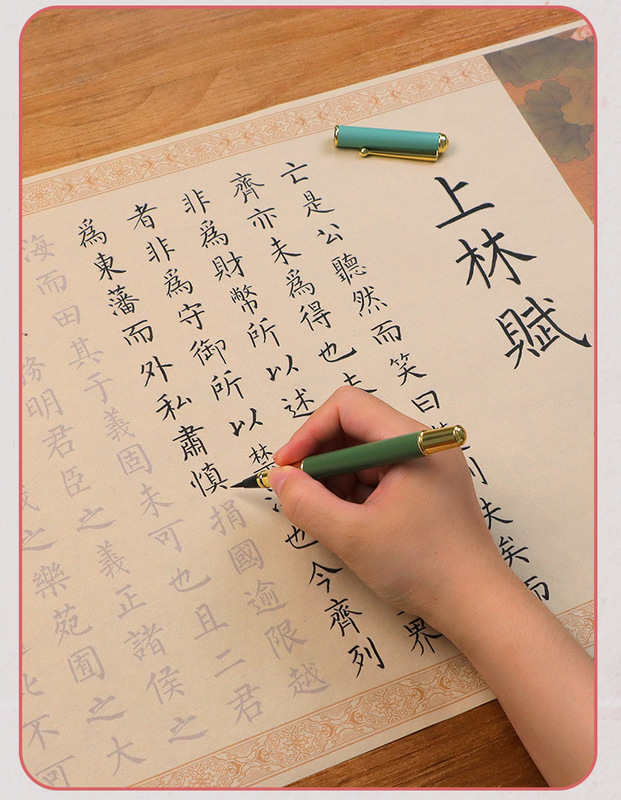 上林賦
亡是公聽然而笑曰
失矣而
齊亦未爲得也夫
非爲財幣所以述
界
者非爲守御所以禁
也今齊列
爲東藩而外私肅慎捐國逾限越
海而田其于義固未可也且二君
務明君臣之義正諸侯之
之樂苑囿之大
不可